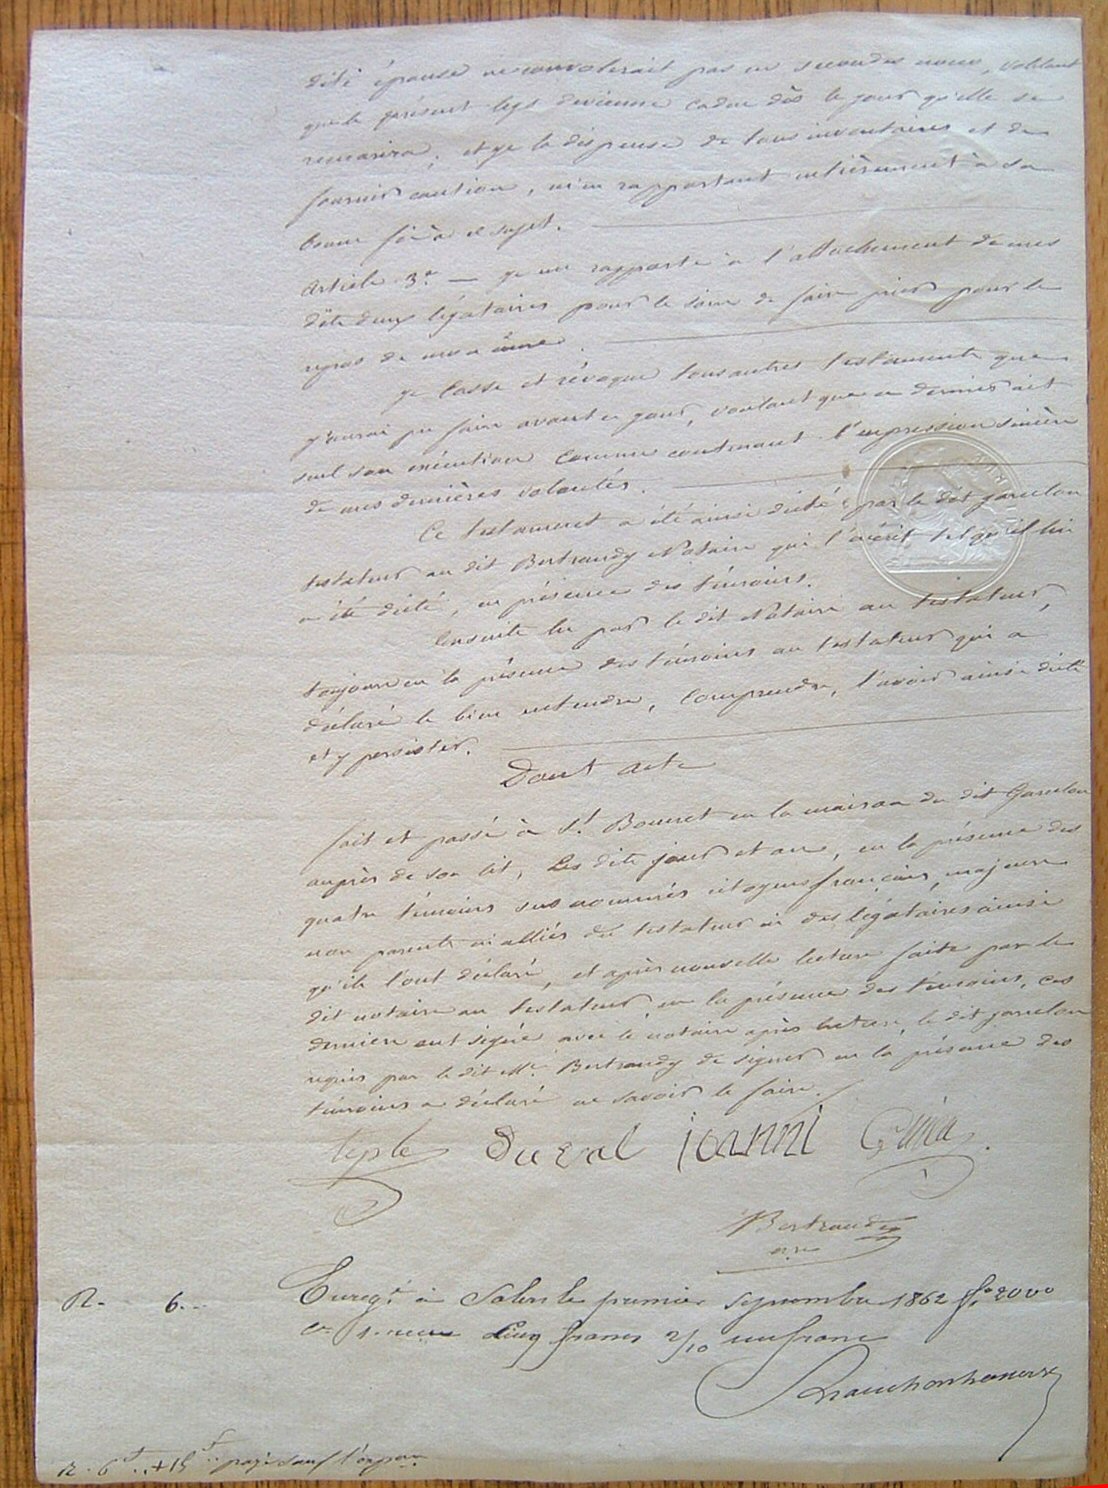 dite épouse ne convolerait pas en secondes noces, voulant
que le présent legs devienne caduc dès le jour qu'elle se
remariera, et je la dispense de tous inventaires et de
fournir caution, m'en rapportant entièrement à sa
bonne foi à ce sujet.
Article 3e. — je me rapporte à l'attachement de mes
dits deux légataires pour le soin de faire prier pour le
repos de mon âme.
je casse et révoque tous autres testaments que
j'aurai pu faire avant ce jour, voulant que ce dernier ait
seul son exécution comme contenant l'expression sincère
de mes dernières volontés.
Ce testament a été ainsi dicté par le dit Garcelon
testateur au dit Bertrandy Notaire qui l'a écrit tel qu'il lui
a été dicté, en présence des témoins.
Ensuite lu par le dit Notaire au testateur,
toujours en la présence des témoins au testateur qui a
déclaré le bien entendre, comprendre, l'avoir ainsi dicté
et y persister.
Dont acte
fait et passé à St. Bonnet en la maison du dit Garcelon
auprès de son lit, les dits jour et an, en la présence des
quatre témoins sus nommés citoyens français, majeurs
non parents ni alliés du testateur ni des légataires ainsi
qu'ils l'ont déclaré, et après nouvelle lecture faite par le
dit notaire au testateur en la présence des témoins, ces
derniers ont signé avec le notaire après lecture, le dit Garcelon
requis par le dit Me. Bertrandy de signer en la présence des
témoins a déclaré ne savoir le faire.
Duval ioanni
Bertrandy
R. 6.
Enregt. à Salers le premier septembre 1862 fo 20
cinq francs 2/10 un franc